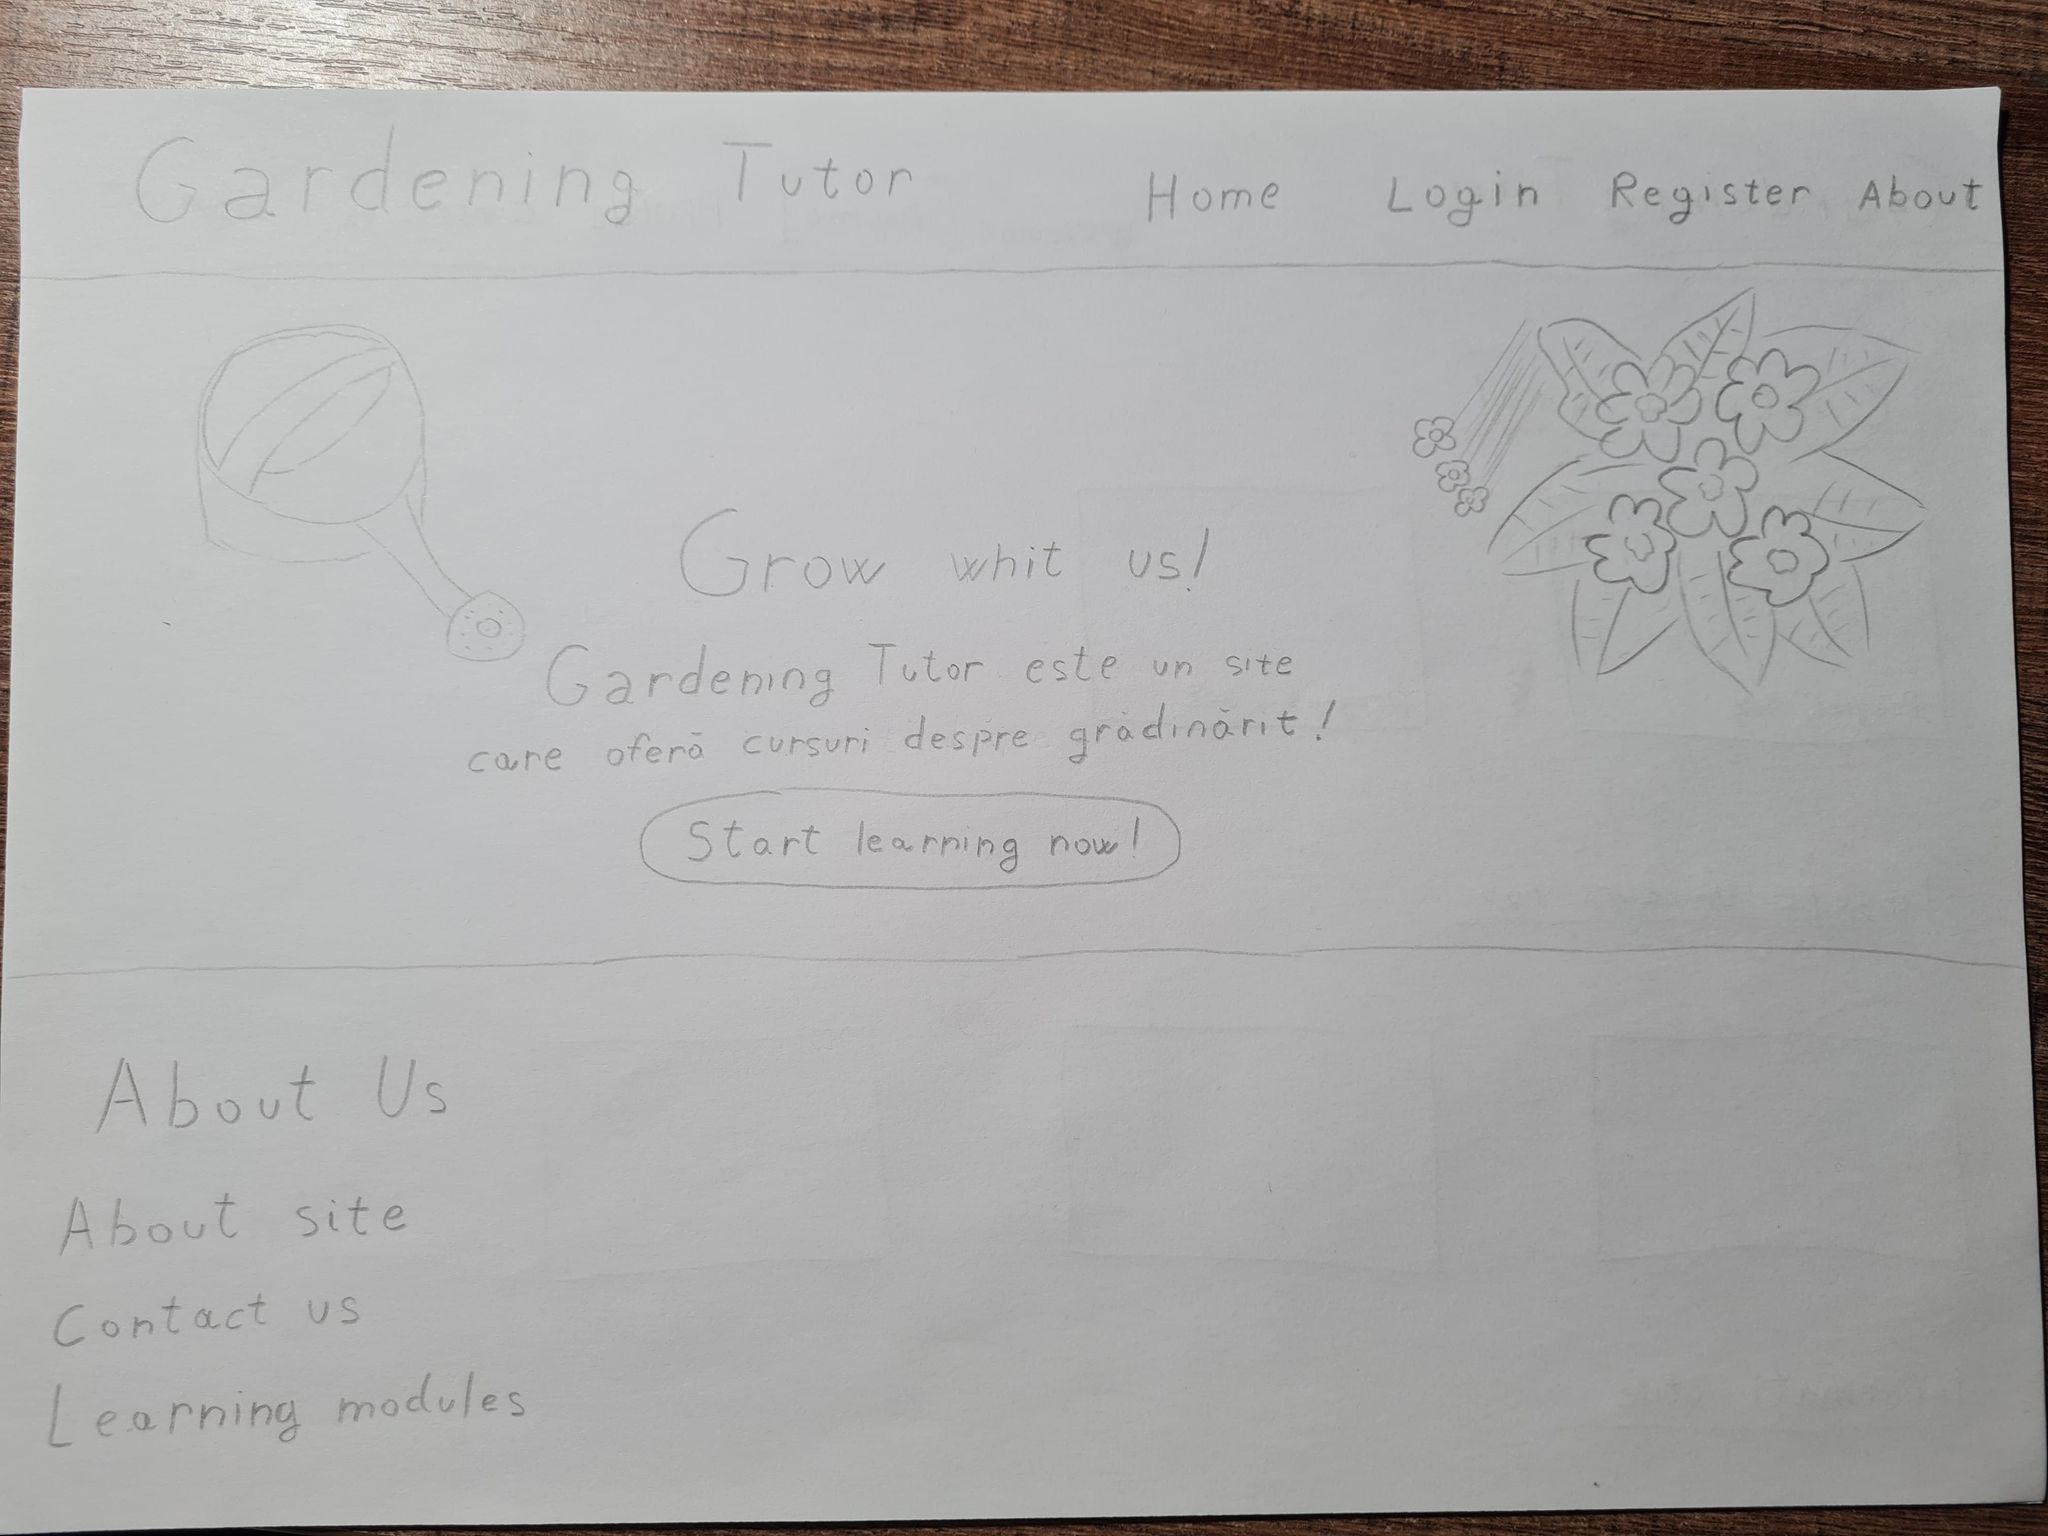 Gardening Tutor Home Login Register About
Grow whit us!
Gardening Tutor este un site
care oferă cursuri despre grădinărit!
Start learning now!
About Us
About site
Contact us
Learning modules